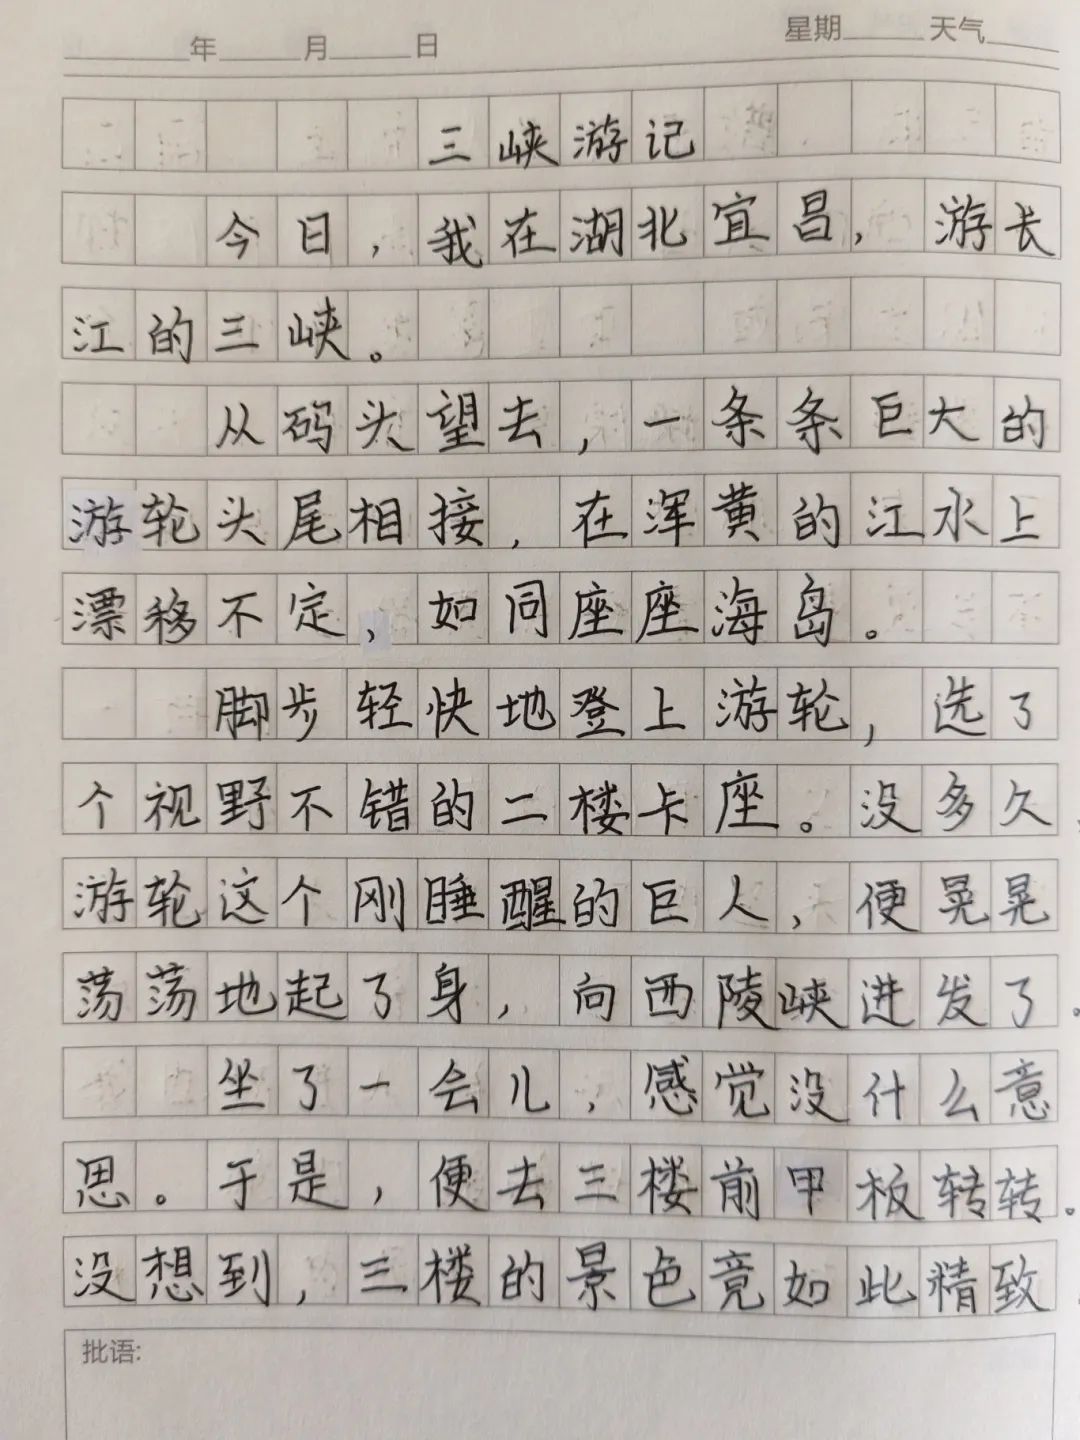 年 月 日 星期 天气
三峡游记
今日，我在湖北宜昌，游长
江的三峡。
从码头望去，一条条巨大的
游轮头尾相接，在浑黄的江水上
漂移不定，如同座座海岛。
脚步轻快地登上游轮，选了
个视野不错的二楼卡座。没多久，
游轮这个刚睡醒的巨人，便晃晃
荡荡地起了身，向西陵峡进发了。
坐了一会儿，感觉没什么意
思。于是，便去三楼前甲板转转。
没想到，三楼的景色竟如此精致
批语: